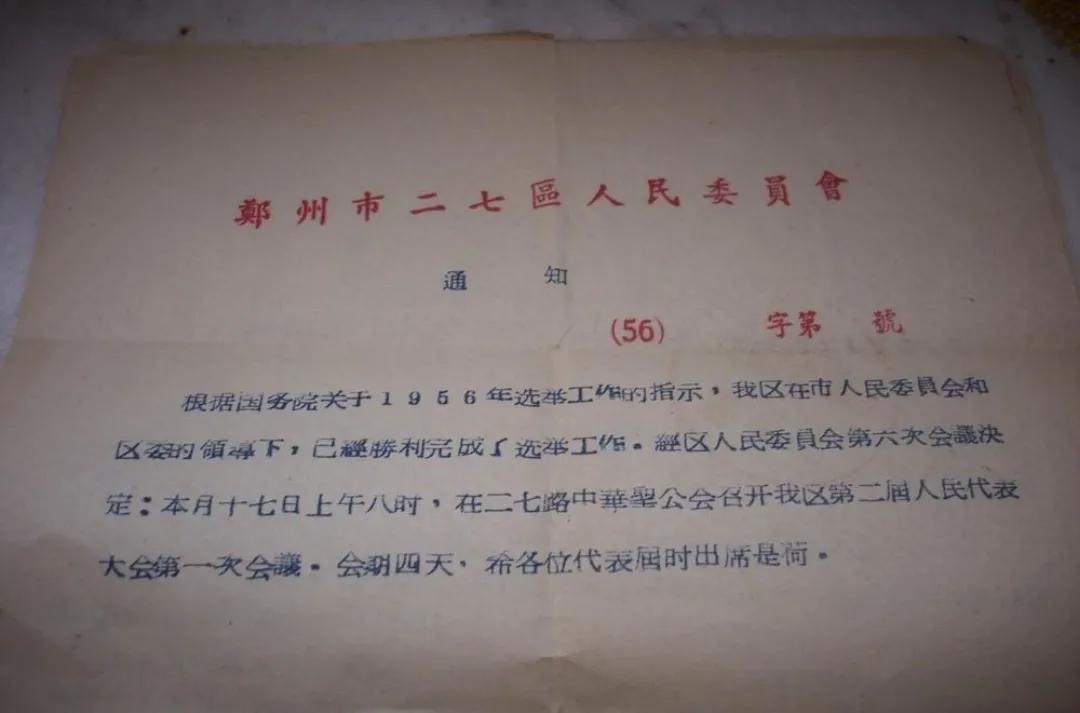 鄭州市二七區人民委員會
通 知
(56) 字第 號
根据国务院关于1956年选举工作的指示，我区在市人民委員会和
区委的領導下，已經勝利完成了选举工作。經区人民委員会第六次会議决
定：本月十七日上午八时，在二七路中華聖公会召开我区第二届人民代表
大会第一次会議。会期四天，希各位代表届时出席是荷。